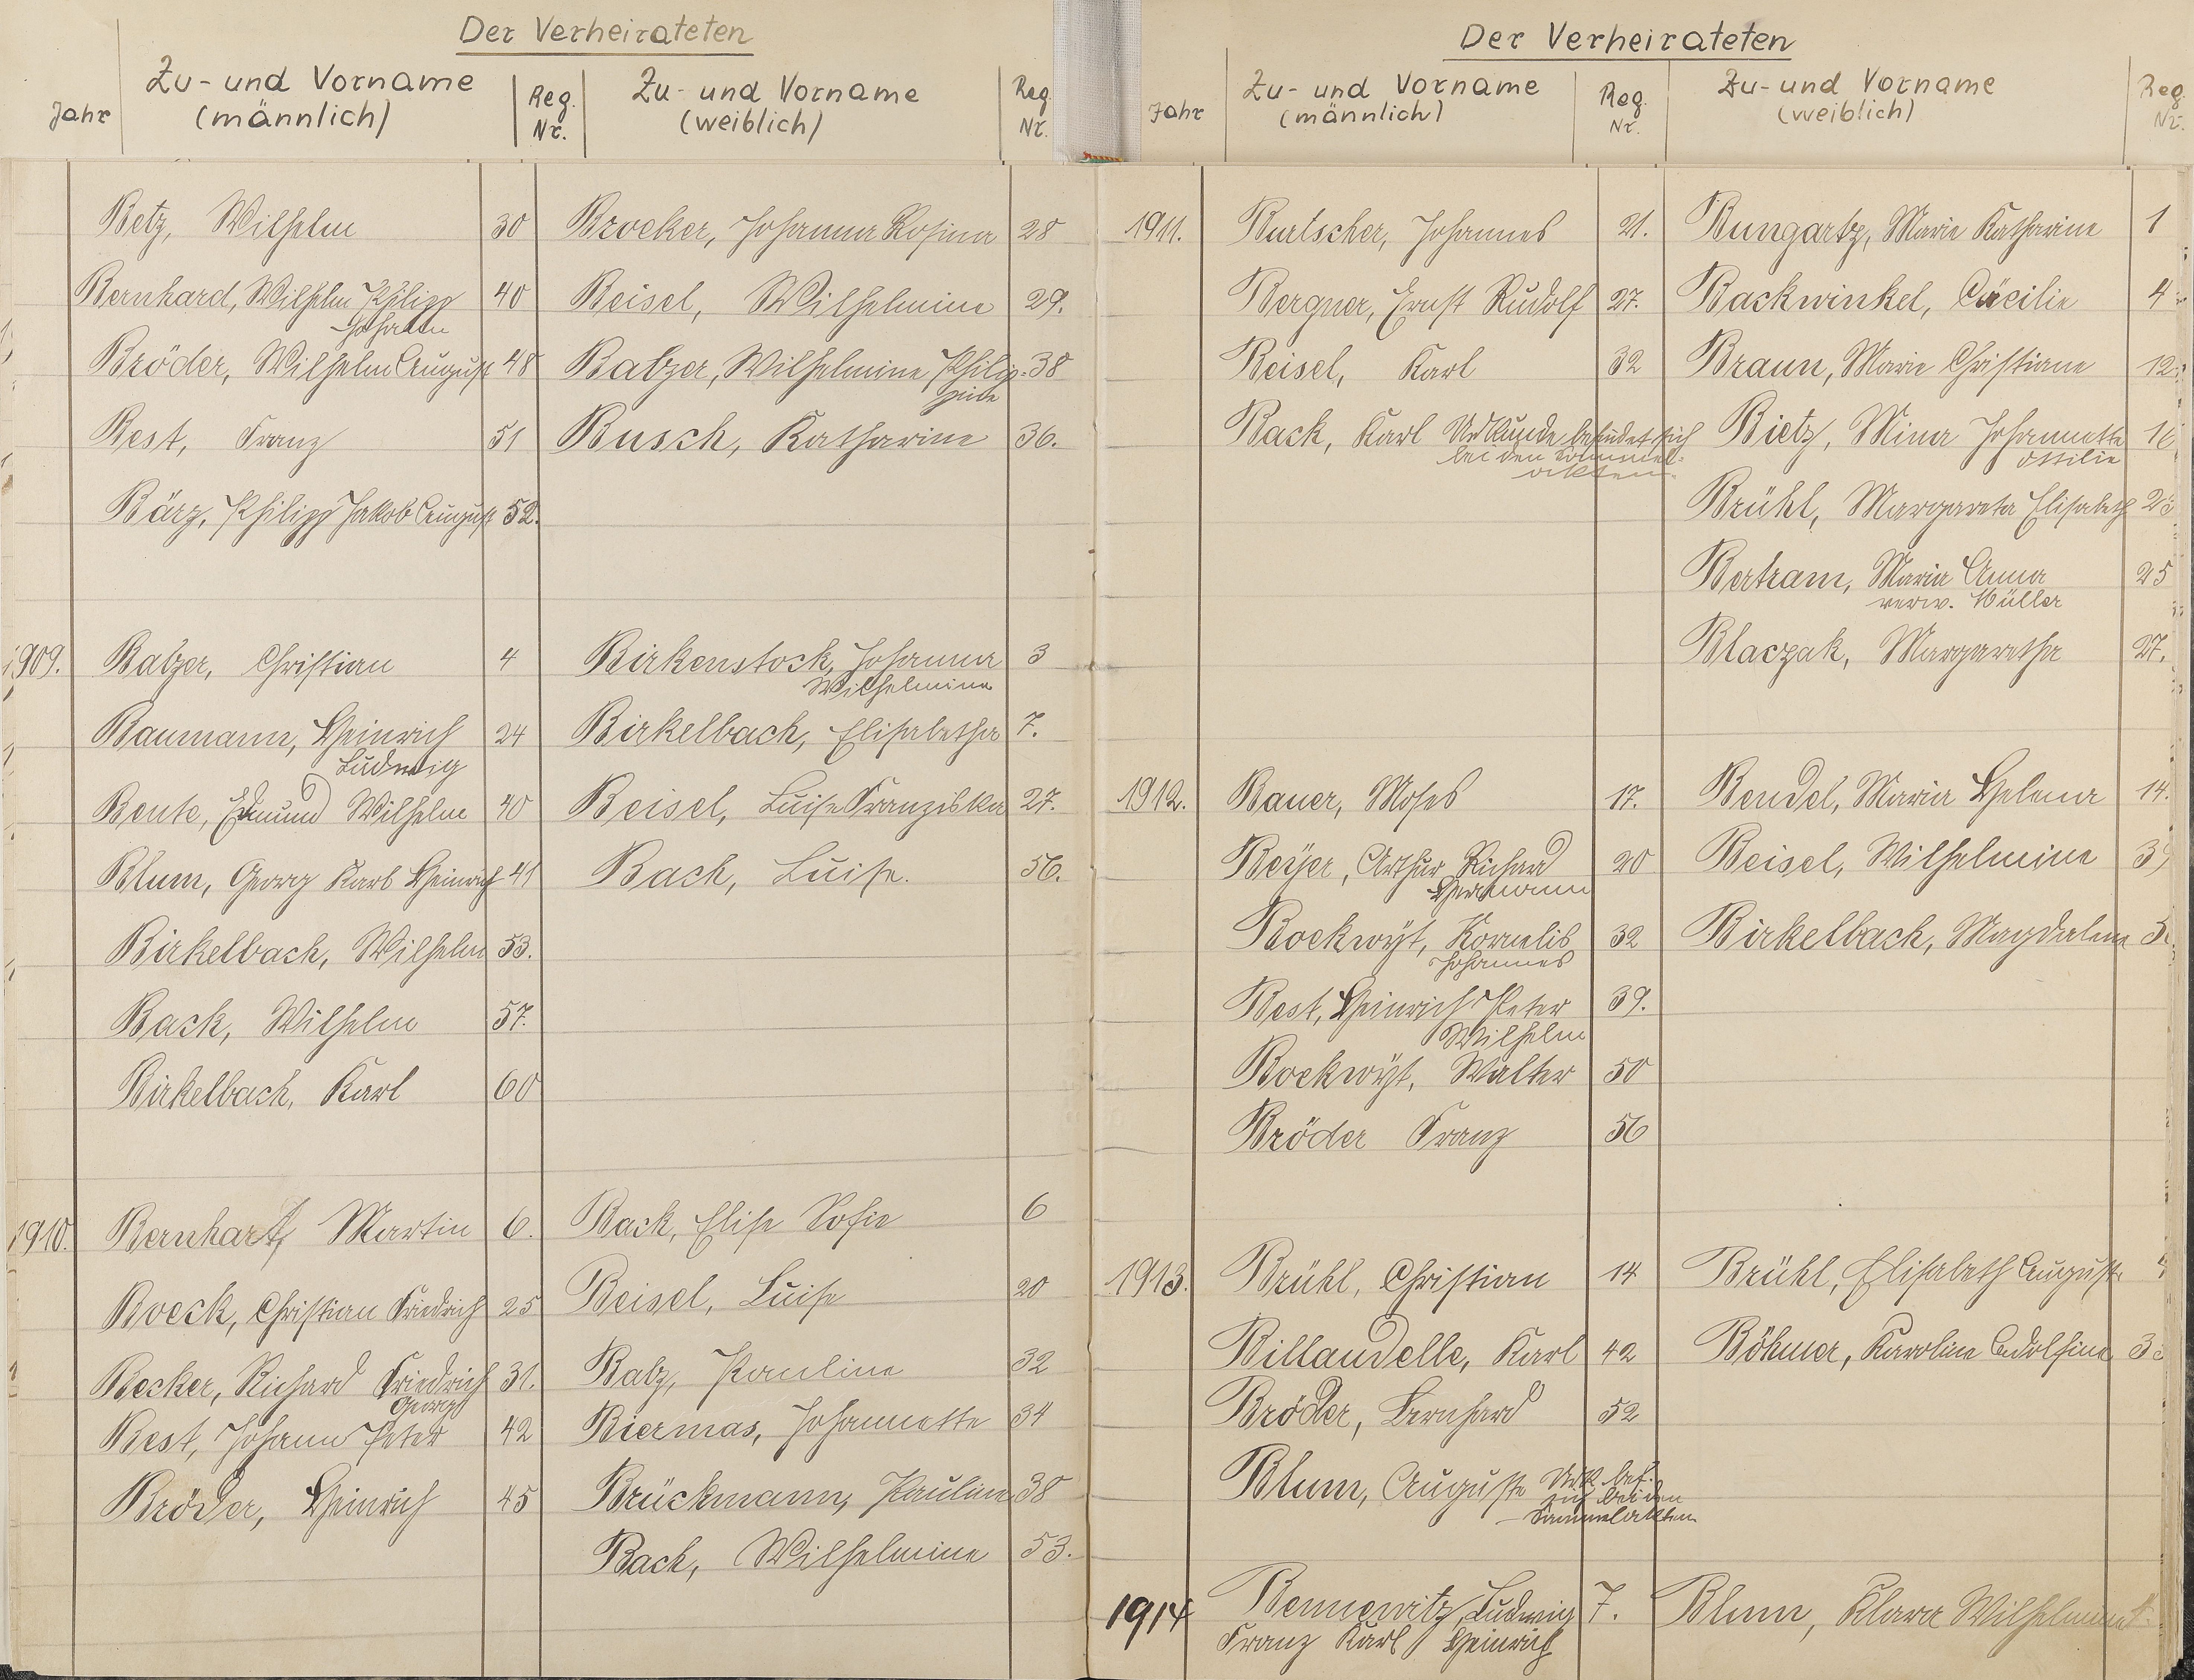 Der Verheirateten
Jahr
Zu- und Vorname
(männlich)
Reg.
Nr.
Zu- und Vorname
(weiblich)
Reg.
Nr.
Betz, Wilhelm 30 Broeker, Johanna Rosina 28
Bernhard, Wilhelm Philipp 40 Beisel, Wilhelmine 29.
Johann
Bröder, Wilhelm August 48 Balzer, Wilhelmine Philip- 38
pine
Best, Franz 51 Busch, Katharine 36.
Bärz, Philipp Jakob August 52.
1909. Balzer, Christian 4 Birkenstock, Johanna 3
Wilhelmina
Baumann, Heinrich 24 Birkelbach, Elisabetha 7.
Ludwig
Bente, Edmund Wilhelm 40 Beisel, Luise Franziska 27.
Blum, Georg Karl Heinrich 41 Bach, Luise. 56.
Birkelbach, Wilhelm 53.
Back, Wilhelm 57.
Birkelbach, Karl 60
1910. Bernhart, Martin 6. Back, Elise Sofie 6
Boeck, Christian Friedrich 25 Beisel, Luise 20
Becker, Richard Friedrich 31. Balz, Pauline 32
Georg
Best, Johann Peter 42 Biermas, Johannette 34
Bröder, Heinrich 45 Brückmann, Pauline 38
Bach, Wilhelmine 53.
Der Verheirateten
Jahr
Zu- und Vorname
(männlich)
Reg.
Nr.
Zu- und Vorname
(weiblich)
Reg.
Nr.
1911. Burtscher, Johannes 21. Bungartz, Marie Katharine 1
Bergner, Ernst Rudolf 27. Backwinkel, Cäcilie 4
Beisel, Karl 32 Braun, Marie Christiane 12
Back, Karl Urkunde befindet sich Bietz, Mina Johannette 16
bei den Sammel- Ottilie
akten.
Brühl, Margareta Elisabeth
Bertram, Maria Anna 25
verw. Müller
Blaczak, Margaretha 27.
1912. Bauer, Moses 17. Bendel, Maria Helena 14.
Beyer, Arthur Richard 20 Beisel, Wilhelmine
Hermann
Bockwÿt, Kornelis 32 Birkelbach, Magdalene
Johannes
Best, Heinrich Peter 39.
Wilhelm
Bockwÿt, Walter 50
Bröder Franz 56
1913. Brühl, Christian 14 Brühl, Elisabeth Auguste
Billaudelle, Karl 42 Böhmer, Karoline Adolfine
Bröder, Bernhard 52
Blum, Auguste Urk. bef.
sich bei den
Sammelakten
1914 Bennewitz, Ludwig 7. Blum, Klara Wilhelmine
Franz Karl Heinrich